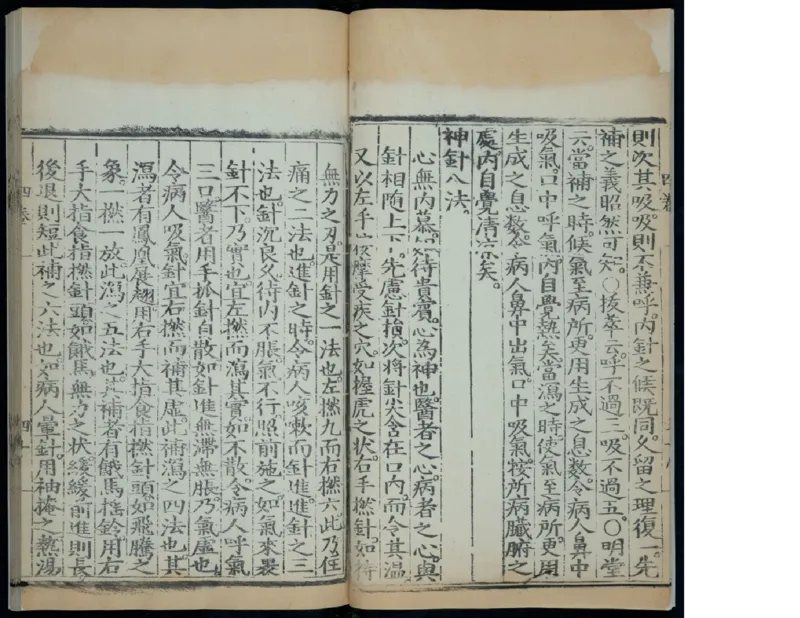 則次其吸吸則不兼呼。內針之候旣同。久留之理復一。先
補之義昭然可知。○拔萃云。呼不過三。吸不過五。○明堂
云。當補之時。候氣至病所。更用生成之息數。令病人鼻中
吸氣。口中呼氣。內自覺熱矣。當瀉之時。使氣至病所。更用
生成之息數。令病人鼻中出氣。口中吸氣。按所病臟腑之
處。內自覺清凉矣。
神針八法。
心無內慕。如待貴賓。心爲神也。醫者之心。病者之心。與
針相隨上下。先慮針損。次將針尖含在口內。而令其溫
又以左手按摩受疾之穴。如握虎之狀。右手撚針。如持
無力之刃。是用針之一法也。左撚九而右撚六。此乃住
痛之二法也。進針之時。令病人咳嗽而針進。進針之三
法也。針沉良久。待內不脹。氣不行。照前施之。如氣來裹
針不下。乃實也。宜左撚而瀉其實。如不散。令病人呼氣
三口。醫者用手抓針自散。如針進無滯無脹。乃氣虛也。
令病人吸氣。針宜右撚而補其虛。此補瀉之四法也。其
瀉者有鳳凰展翅。用右手大指食指撚針頭。如飛騰之
象。一撚一放。此瀉之五法也。其補者有餓馬搖鈴。用右
手大指食指撚針頭。如餓馬無力之狀。緩緩前進則長。
後退則短。此補之六法也。如病人暈針。用袖掩之。熱湯
四卷
四